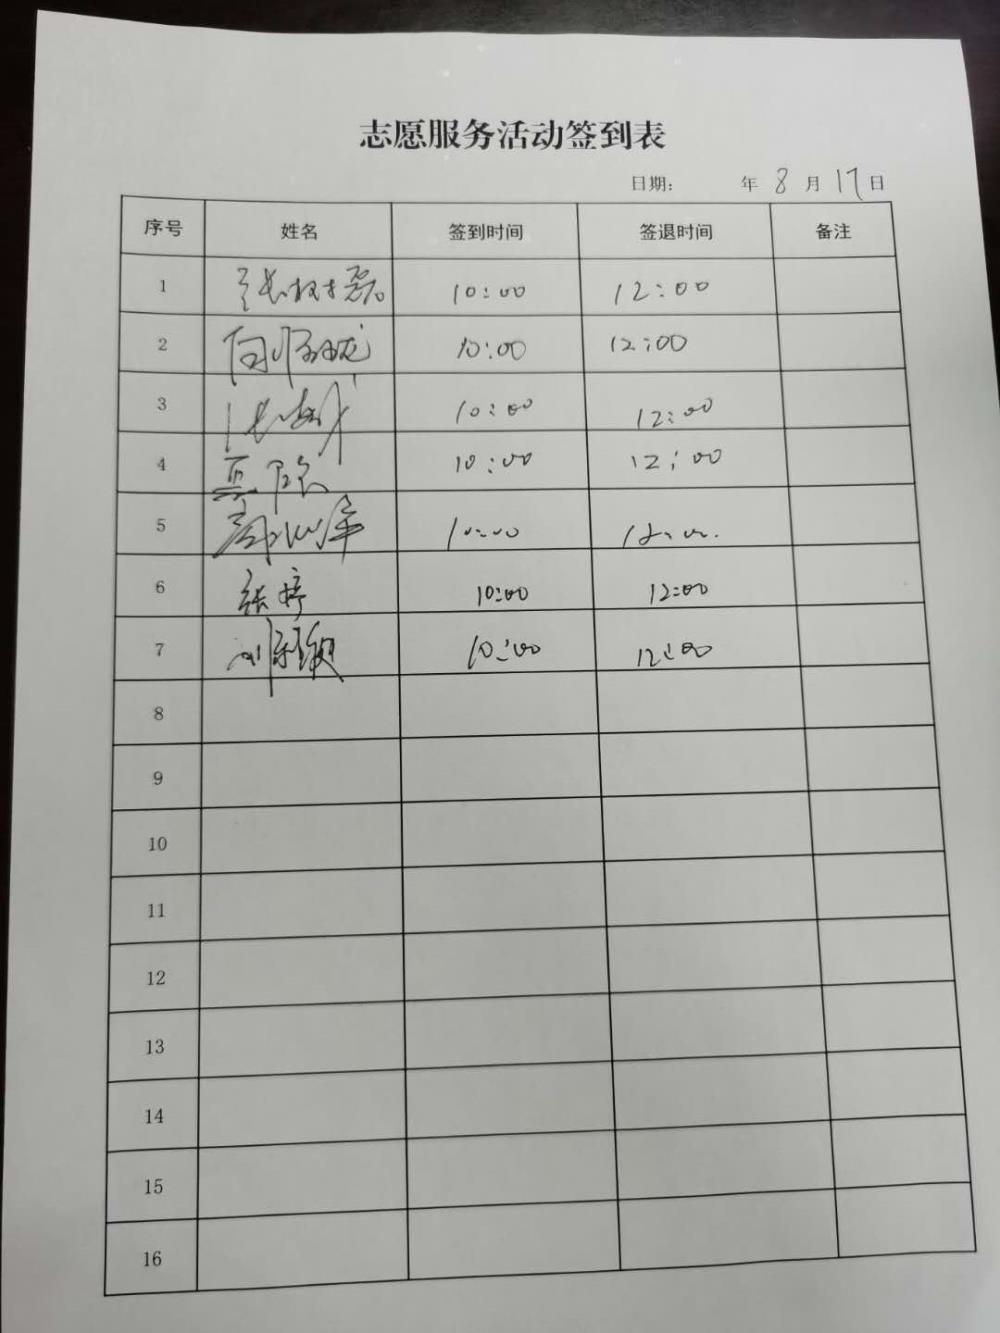 志愿服务活动签到表
日期: 年 8 月 17 日
序号 姓名 签到时间 签退时间 备注
1 张树磊 10:00 12:00
2 10:00 12:00
3 10:00 12:00
4 10:00 12:00
5 10:00 12:00
6 张婷 10:00 12:00
7 10:00 12:00
8
9
10
11
12
13
14
15
16